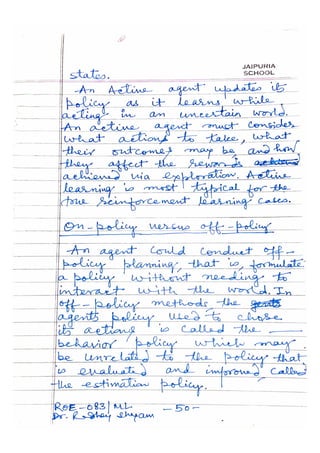 JAIPURIA
SCHOOL
states.
An Active agent updates its
policy as it learns while
acting in an uncertain world.
An active agent must consider
what actions to take, what
their outcomes may be and how
they affect the rewards
achieved via exploration. Active
learning is most typical for the
true reinforcement learning cases.
On-policy versus off-policy
An agent could conduct off-
policy planning, that is, formulate
a policy without needing to
interact with the world. In
off-policy methods the
agents policy used to chose
its actions is called the
behavior policy which may
be unrelated to the policy that
is evaluated and improved called
the estimation policy.
ROE-083/ML -50-
Dr.